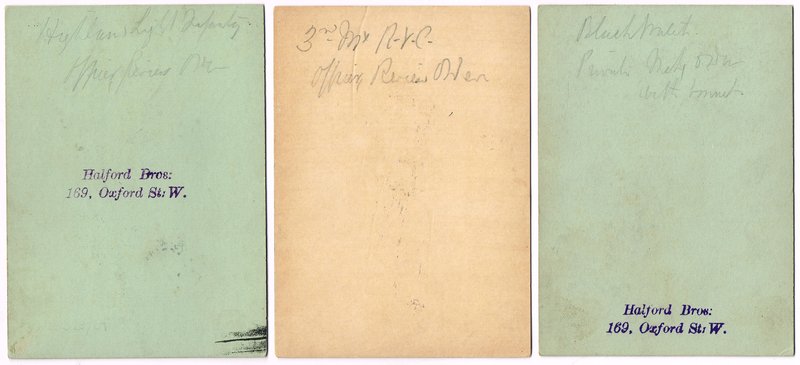 Highland Light Infantry
Officer Review Order
Halford Bros:
169, Oxford St: W.
3rd Mx R.V.C.
Officer Review Order
Black Watch
Private Order
with bonnet.
Halford Bros:
169, Oxford St: W.